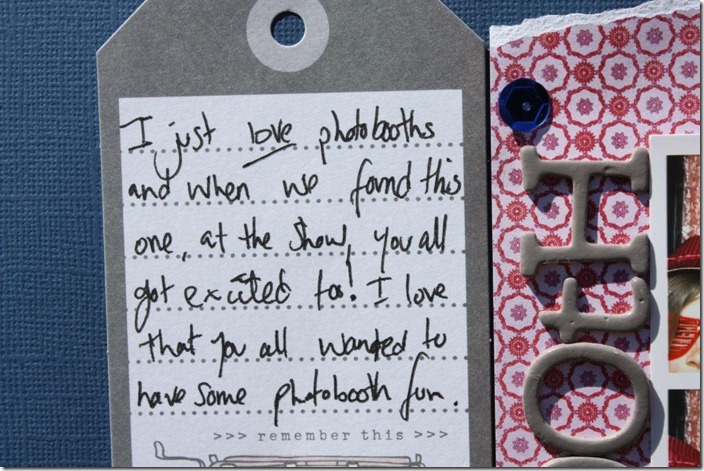 I just love photobooths
and when we found this
one, at the show, you all
got excited too! I love
that you all wanted to
have some photobooth fun.
>>> remember this >>>
OtH